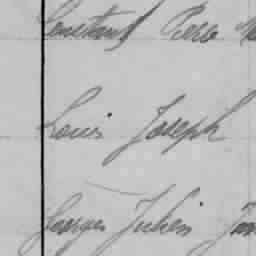 Constant Pierre
Louis Joseph
Georges Julien